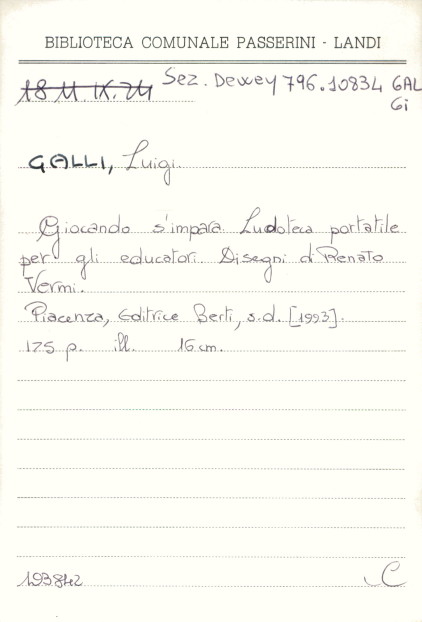 BIBLIOTECA COMUNALE PASSERINI - LANDI
18 M. IX. 24 Sez. Dewey 796.10834 GAL
Gi
GALLI, Luigi.
Giocando s'impara. Ludoteca portatile
per gli educatori. Disegni di Renato
Vermi.
Piacenza, Editrice Berti, s.d. [1993].
175 p. ill. 16 cm.
193842 C